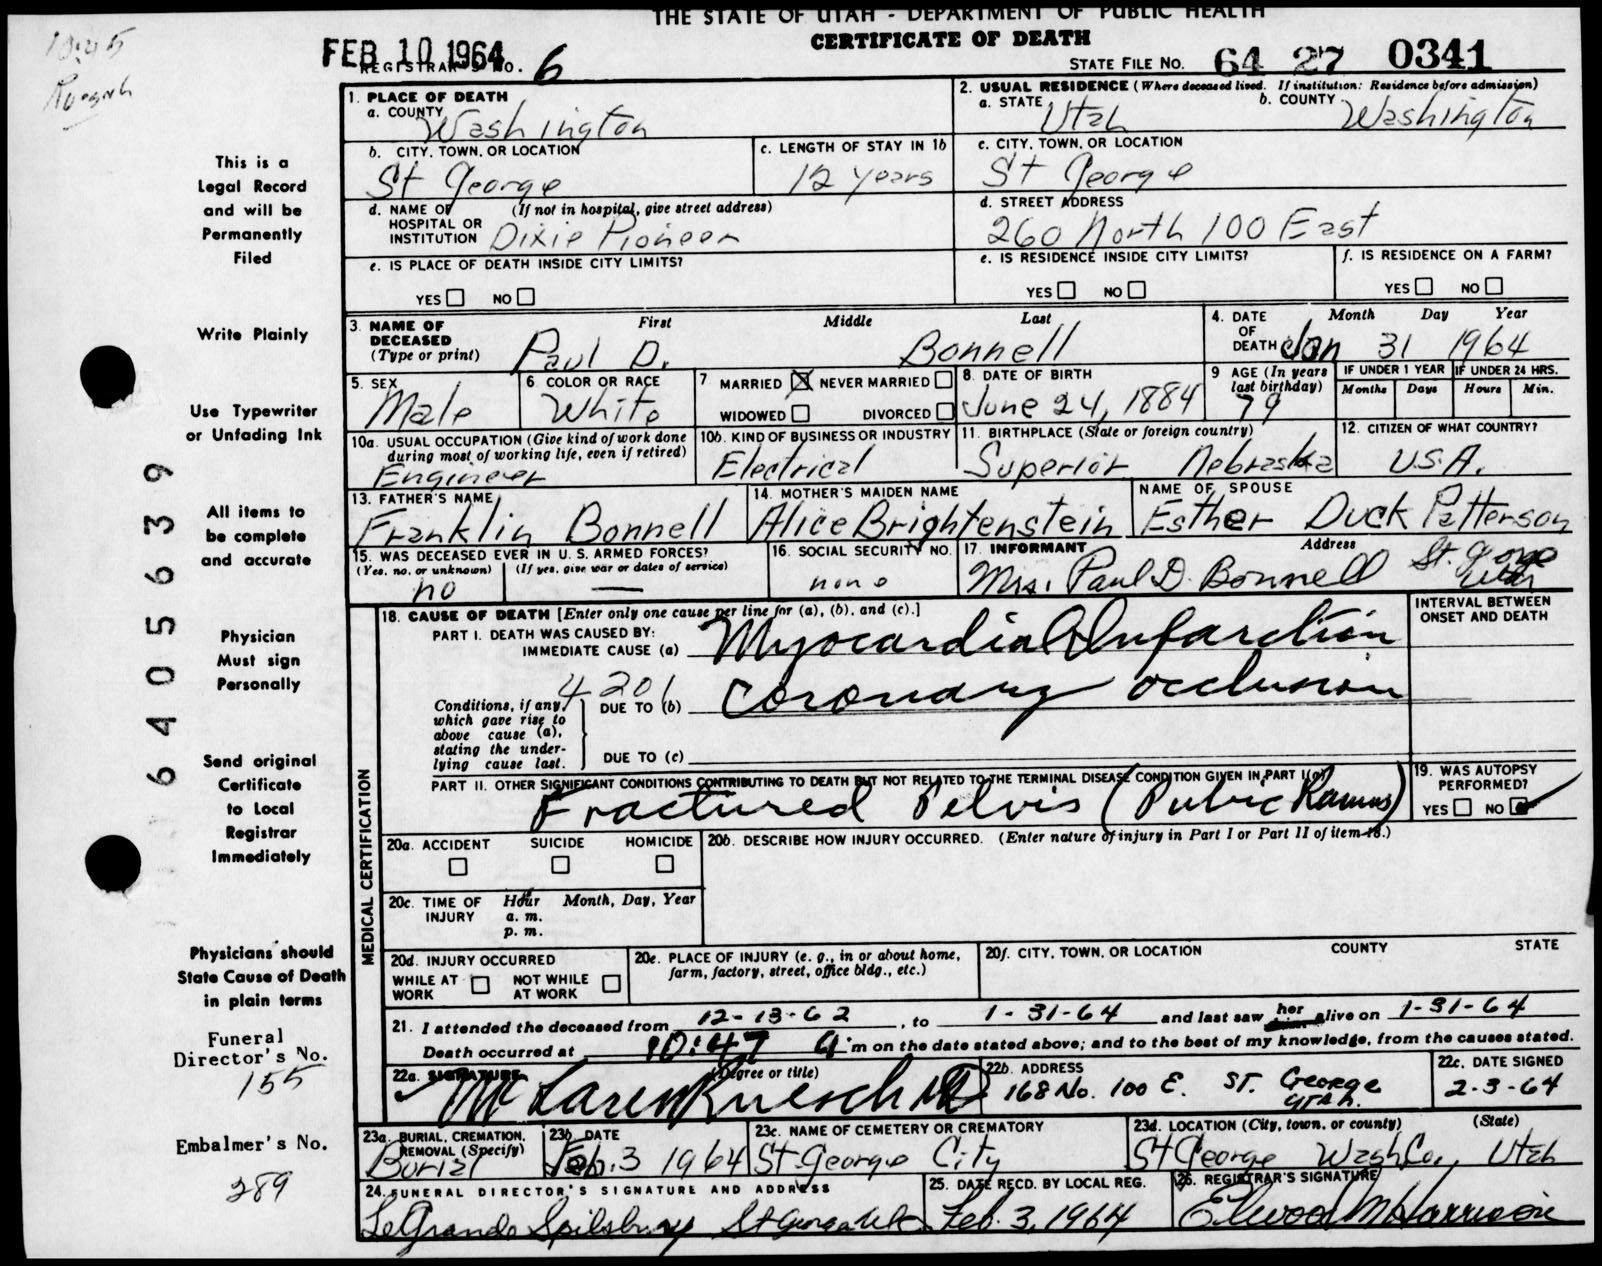 THE STATE OF UTAH - DEPARTMENT OF PUBLIC HEALTH
CERTIFICATE OF DEATH
FEB 10 1964
REGISTRAR'S NO. 6
STATE FILE NO. 64 27 0341
10:45
This is a
Legal Record
and will be
Permanently
Filed
Write Plainly
Use Typewriter
or Unfading Ink
All items to
be complete
and accurate
Physician
Must sign
Personally
Send original
Certificate
to Local
Registrar
Immediately
Physicians should
State Cause of Death
in plain terms
Funeral
Director's No.
155
Embalmer's No.
289
6405639
1. PLACE OF DEATH
a. COUNTY
Washington
2. USUAL RESIDENCE (Where deceased lived. If institution: Residence before admission)
a. STATE Utah b. COUNTY Washington
b. CITY, TOWN, OR LOCATION
St George
c. LENGTH OF STAY IN 1b
12 years
c. CITY, TOWN, OR LOCATION
St George
d. NAME OF HOSPITAL OR INSTITUTION (If not in hospital, give street address)
Dixie Pioneer
d. STREET ADDRESS
260 North 100 East
e. IS PLACE OF DEATH INSIDE CITY LIMITS?
YES NO
e. IS RESIDENCE INSIDE CITY LIMITS?
YES NO
f. IS RESIDENCE ON A FARM?
YES NO
3. NAME OF DECEASED (Type or print)
First Middle Last
Paul D. Bonnell
4. DATE OF DEATH
Month Day Year
Jan 31 1964
5. SEX
Male
6. COLOR OR RACE
White
7. MARRIED X NEVER MARRIED
WIDOWED DIVORCED
8. DATE OF BIRTH
June 24, 1884
9 AGE (In years last birthday)
79
IF UNDER 1 YEAR
Months Days
IF UNDER 24 HRS.
Hours Min.
10a. USUAL OCCUPATION (Give kind of work done during most of working life, even if retired)
Engineer
10b. KIND OF BUSINESS OR INDUSTRY
Electrical
11. BIRTHPLACE (State or foreign country)
Superior Nebraska
12. CITIZEN OF WHAT COUNTRY?
U.S.A.
13. FATHER'S NAME
Franklin Bonnell
14. MOTHER'S MAIDEN NAME
Alice Brightenstein
NAME OF SPOUSE
Esther Duck Patterson
15. WAS DECEASED EVER IN U. S. ARMED FORCES?
(Yes, no, or unknown) (If yes, give war or dates of service)
no —
16. SOCIAL SECURITY NO.
none
17. INFORMANT Address
Mrs. Paul D. Bonnell St. George Utah
MEDICAL CERTIFICATION
18. CAUSE OF DEATH [Enter only one cause per line for (a), (b), and (c).]
INTERVAL BETWEEN ONSET AND DEATH
PART I. DEATH WAS CAUSED BY:
IMMEDIATE CAUSE (a) Myocardial Infarction
4201
Conditions, if any, which gave rise to above cause (a), stating the underlying cause last.
DUE TO (b) Coronary occlusion
DUE TO (c)
PART II. OTHER SIGNIFICANT CONDITIONS CONTRIBUTING TO DEATH BUT NOT RELATED TO THE TERMINAL DISEASE CONDITION GIVEN IN PART I(a)
Fractured Pelvis (Pubic Ramus)
19. WAS AUTOPSY PERFORMED?
YES NO
20a. ACCIDENT SUICIDE HOMICIDE
20b. DESCRIBE HOW INJURY OCCURRED. (Enter nature of injury in Part I or Part II of item 18.)
20c. TIME OF INJURY
Hour Month, Day, Year
a. m.
p. m.
20d. INJURY OCCURRED
WHILE AT WORK NOT WHILE AT WORK
20e. PLACE OF INJURY (e. g., in or about home, farm, factory, street, office bldg., etc.)
20f. CITY, TOWN, OR LOCATION COUNTY STATE
21. I attended the deceased from 12-13-62, to 1-31-64 and last saw her him alive on 1-31-64
Death occurred at 10:47 a m on the date stated above; and to the best of my knowledge, from the causes stated.
22a. SIGNATURE (Degree or title)
McLaren Ruesch MD
22b. ADDRESS
168 No. 100 E. ST. George Utah.
22c. DATE SIGNED
2-3-64
23a. BURIAL, CREMATION, REMOVAL (Specify)
Burial
23b. DATE
Feb. 3 1964
23c. NAME OF CEMETERY OR CREMATORY
St George City
23d. LOCATION (City, town, or county) (State)
St George Wash Co., Utah
24. FUNERAL DIRECTOR'S SIGNATURE AND ADDRESS
LeGrande Spilsbury St George Utah
25. DATE RECD. BY LOCAL REG.
Feb. 3, 1964
26. REGISTRAR'S SIGNATURE
Elwood M Harrison